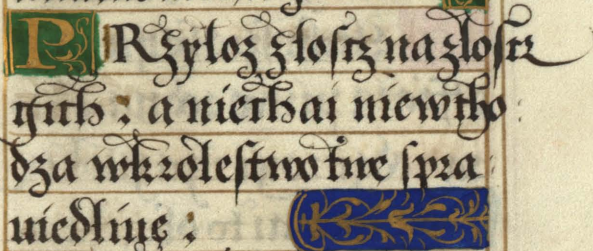 PRzyloż zloſcz na zloſcz
gich : a niechai niewcho
dza wkroleſtwo twe ſpra
uiedliuę :